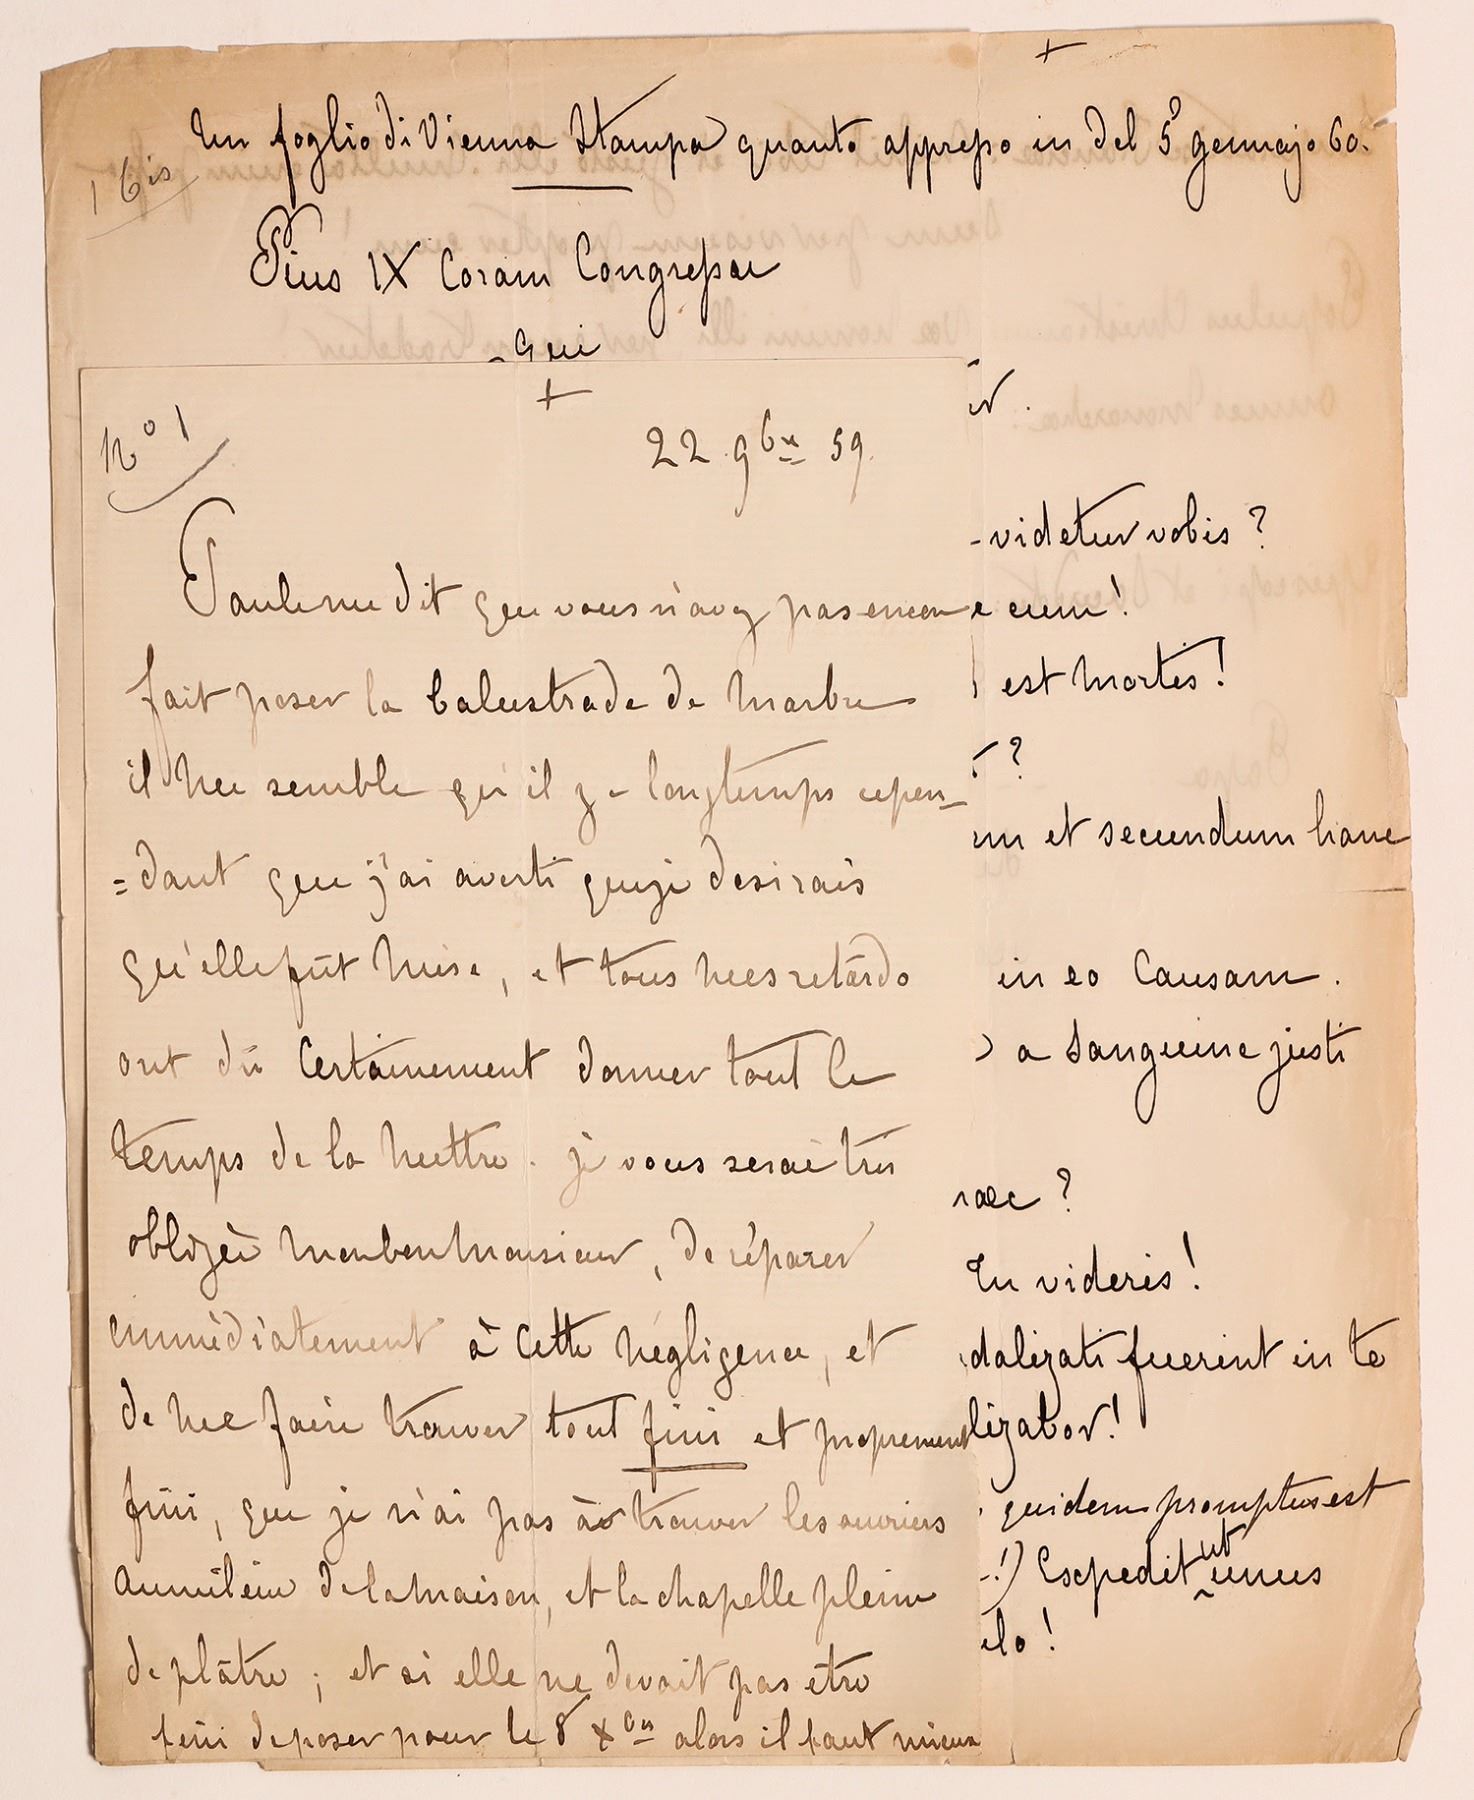 +
Un foglio di Vienna Stampa quanto appresso in del 5 gennajo 60.
1 bis
Pius IX Coram Congressu
- qui
+
N° 1
22 9bre 59.
Paul me dit que vous n'avez pas encore
fait poser la balustrade de marbre
il me semble qu'il y a longtemps cepen-
=dant que j'ai averti que je desirais
qu'elle fût mise, et tous mes retards
ont dû certainement donner tout le
temps de la mettre. je vous serai très
obligée mon bon Monsieur, de réparer
immédiatement à cette négligence, et
de me faire trouver tout fini et proprement
fini, que je n'ai pas à trouver les ouvriers
au milieu de la maison, et la chapelle pleine
de plâtre ; et si elle ne devait pas être
fini de poser pour le 8 Xbre alors il faut mieux
-videtur vobis ?
e eum !
est mortis !
?
et secundum hanc
in eo Causam.
a Sanguine justi
?
Tu videris !
dalizati fuerint in te
lizabor !
quidem promptus est
-!) Expedit ut unus
elo !